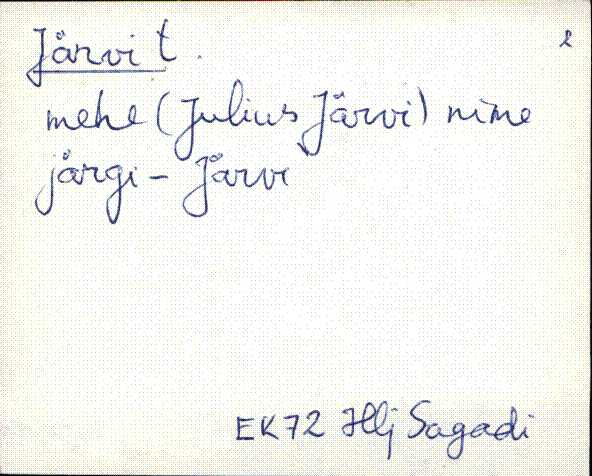 Järvi t.
2
mehe (Julius Järvi) nime
järgi - Järvi
EK72 Hlj Sagadi